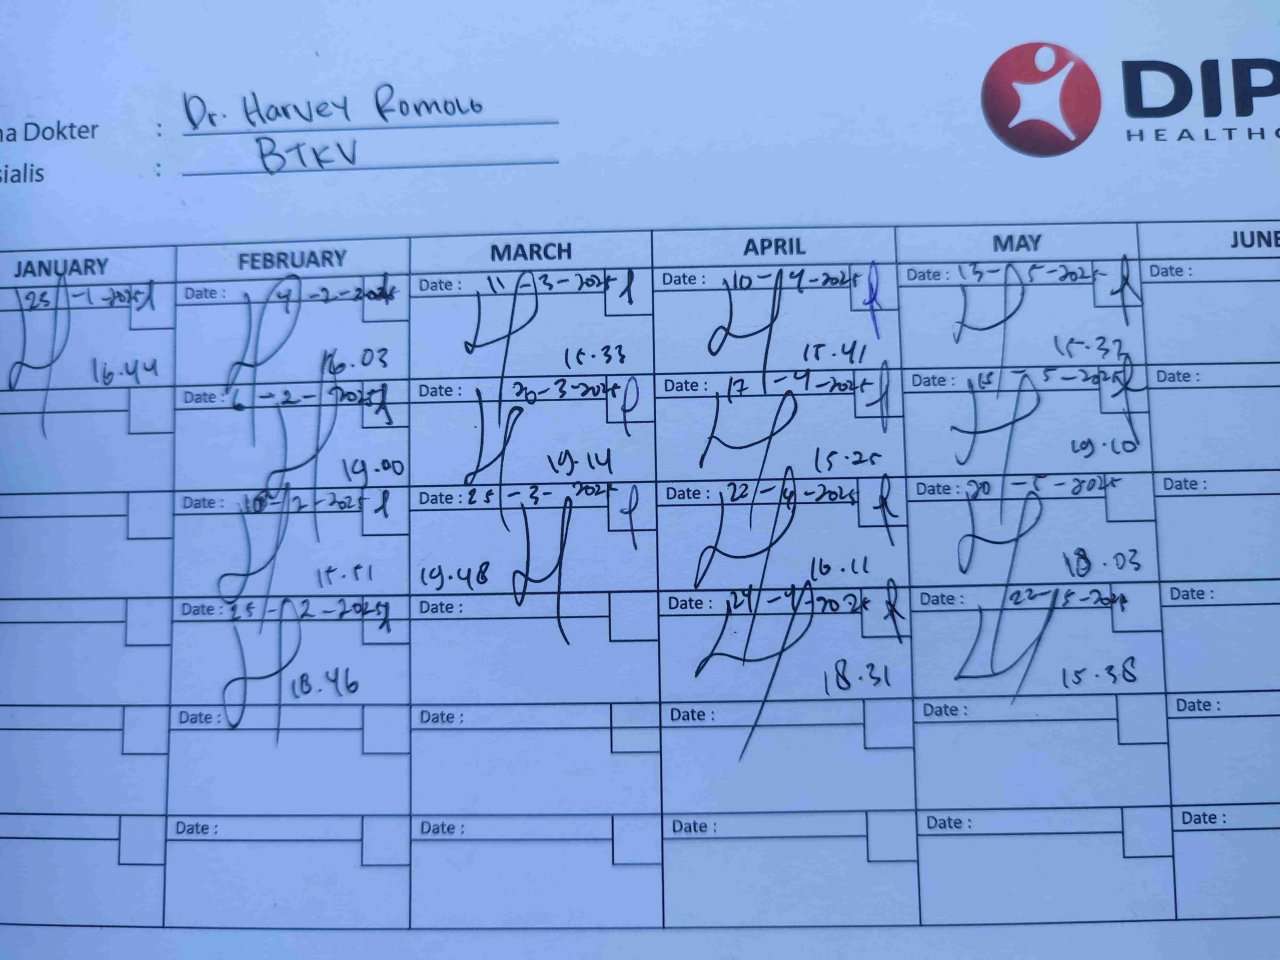 Dr. Harvey Romolo
na Dokter :
BTKV
sialis :
DIP
HEALTHC
JANUARY FEBRUARY MARCH APRIL MAY JUNE
23 -1-2025 Date : 4 -2-2025 Date : 11 -3-2025 Date : 10-4-2025 Date : 13-5-2025 Date :
16.44 16.03 15.33 15.41 15.37
Date : 6 -2-2025 Date : 20-3-2025 Date : 17 -4-2025 Date : 15 -5-2025 Date :
19.00 19.14 15.25 19.10
Date : -2-2025 Date : 25 -3-2025 Date : 22-4-2025 Date : 20 -5-2025 Date :
15.51 19.48 16.11 18.03
Date : 25 -2-2025 Date : Date : 24-4-2025 Date : 22-5-2025 Date :
18.46 18.31 15.38
Date : Date : Date : Date : Date :
Date : Date : Date : Date : Date :